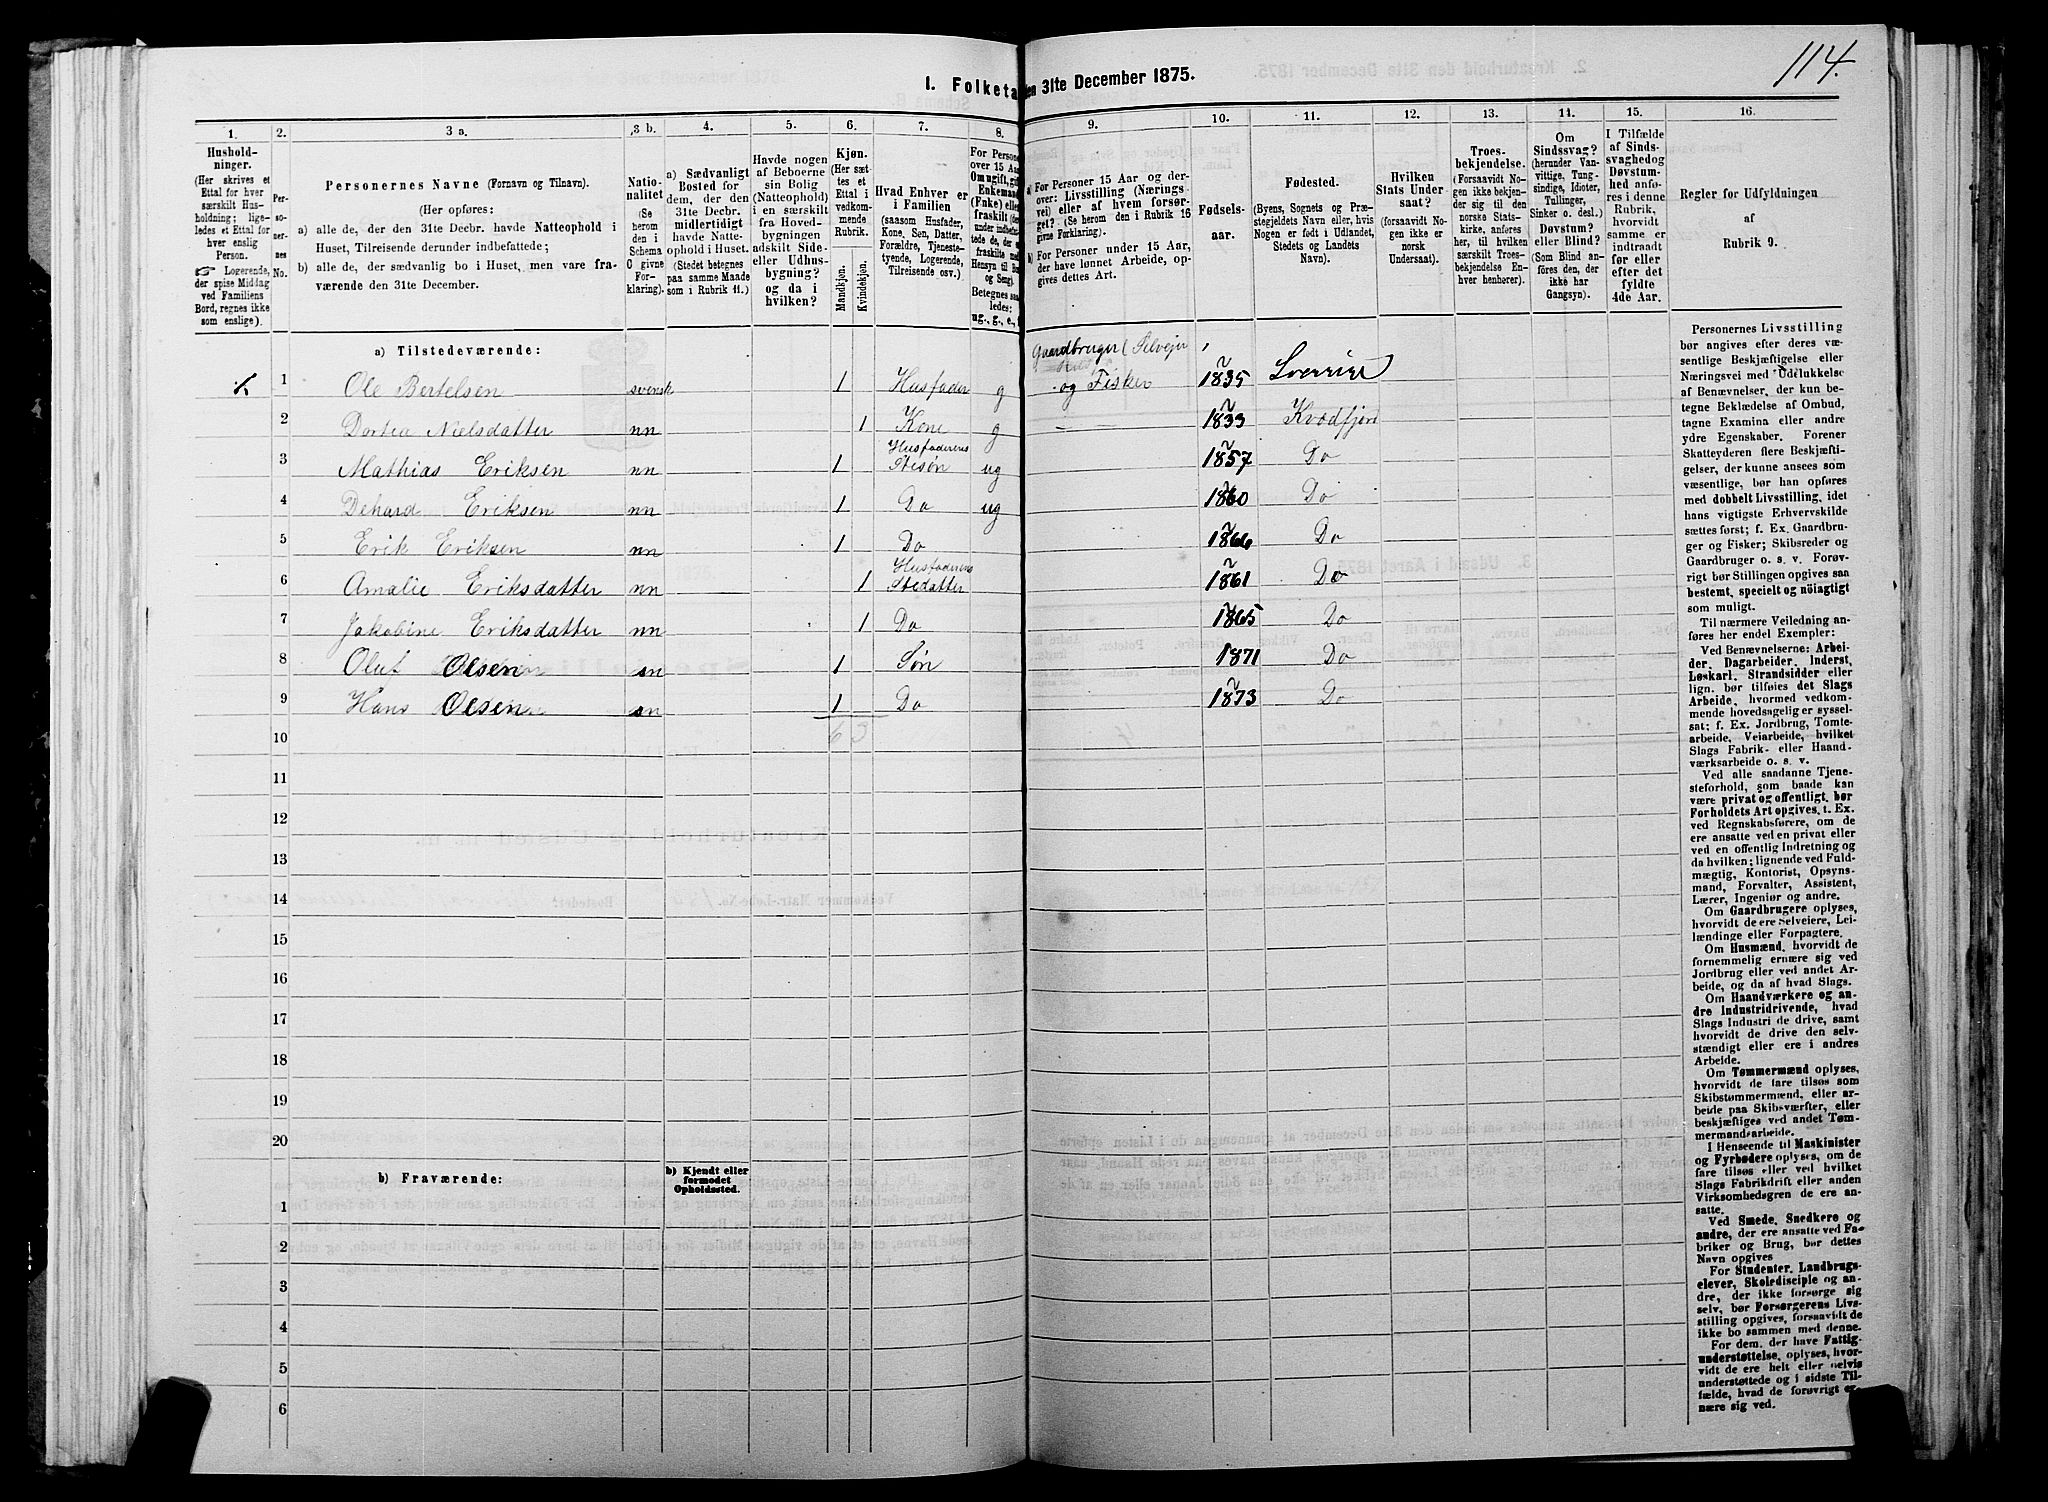 114.
I. Folketa
en 31te December 1875.
1. 2. 3 a. 3 b. 4. 5. 6. 7. 8. 9. 10. 11. 12. 13. 14. 15. 16.
Hushold-
ninger.
(Her skrives et
Ettal for hver
særskilt Hus-
holdning; lige-
ledes et Ettal for
hver enslig
Person.
☞ Logerende,
der spise Middag
ved Familiens
Bord, regnes ikke
som enslige).
Per-
so-
ner-
nes
No.
Personernes Navne (Fornavn og Tilnavn).
(Her opføres:
a) alle de, der den 31te Decbr. havde Natteophold i
Huset, Tilreisende derunder indbefattede;
b) alle de, der sædvanlig bo i Huset, men vare fra-
værende den 31te December.
Natio-
nalitet
(Se
herom
den i
Schema
C givne
For-
klaring).
a) Sædvanligt
Bosted for
dem, der den
31te Decbr.
midlertidigt
havde Natte-
ophold i Huset.
(Stedet betegnes
paa samme Maade
som i Rubrik 11.)
Havde nogen
af Beboerne
sin Bolig
(Natteophold)
i en særskilt
fra Hoved-
bygningen
adskilt Side-
eller Udhus-
bygning?
og da i
hvilken?
Kjøn.
(Her sæt-
tes et
Ettal i
vedkom-
mende
Rubrik.
Mandkjøn.
Kvindekjøn.
Hvad Enhver er
i Familien
(saasom Husfader,
Kone, Søn, Datter,
Forældre, Tjeneste-
tyende, Logerende,
Tilreisende osv.)
For Persone
over 15 Aar
Om ugift, gift
Enkemand
(Fnke) elle
fraskilt
Betegnes saa
ledes:
ug., g., e., f
a) For Personer 15 Aar og der-
over: Livsstilling (Nærings-
vei) eller af hvem forsør-
get? (Se herom den i Rubrik 16
givne Forklaring).
b) For Personer under 15 Aar,
der have lønnet Arbeide, op-
gives dettes Art.
Fødsels-
aar.
Fødested.
(Byens, Sognets og Præ-
stegjeldets Navn eller, hvis
Nogen er født i Udlandet,
Stedets og Landets
Navn).
Hvilken
Stats Under-
saat?
(forsaavidt No-
gen ikke er
norsk
Undersaat).
Troes-
bekjendelse.
(Forsaavidt No-
gen ikke bekjen-
der sig til den
norske Stats-
kirke, anføres
her, til hvilken
særskilt Troes-
bekjendelse En-
hver henhører).
Om
Sindssvag?
(herunder Van-
vittige, Tung-
sindige, Idioter,
Tullinger,
Sinker o. desl.)
Døvstum?
eller Blind?
(Som Blind an-
føres den, der
ikke har
Gangsyn).
I Tilfælde
af Sinds-
svaghed og
Døvstum-
hed anfø-
res i denne
Rubrik,
hvorvidt
samme er
indtraadt
før eller
efter det
fyldte
4de Aar.
Regler for Udfyldningen
af
Rubrik 9.
a) Tilstedeværende:
Gaardbruger Selvejer
1 Ole Bertelsen svensk 1 Husfader g og Fisker 1835 Sverrige
2 Dortea Nielsdatter nn 1 Kone g 1833 Kvædfjord
3 Mathias Eriksen nn 1 Husfaderens Stesøn ug 1857 Do
4 Dehard Eriksen nn 1 Do ug 1860 Do
5 Erik Eriksen nn 1 Do 1866 Do
6 Amalie Eriksdatter nn 1 Husfaderens Stedatter 1861 Do
7 Jakobine Eriksdatter nn 1 Do 1865 Do
8 Oluf Olsen sn 1 Søn 1871 Do
9 Hans Olsen sn 1 Do 1873 Do
10 6 3
11
12
13
14
15
16
17
18
19
20
b) Fraværende:
b) Kjendt eller
formodet
Opholdssted.
1
2
3
4
5
6
Personernes Livsstilling
bør angives efter deres væ-
sentlige Beskjæftigelse eller
Næringsvei med Udelukkelse
af Benævnelser, der kun be-
tegne Beklædelse af Ombud,
tagne Examina eller andre
ydre Egenskaber. Forener
Skatteyderen flere Beskjæfti-
gelser, der kunne ansees som
væsentlige, bør han opføres
med dobbelt Livsstilling, idet
hans vigtigste Erhvervskilde
sættes først; f. Ex. Gaardbru-
ger og Fisker; Skibsreder og
Gaardbruger o. s. v. Forøv-
rigt bør Stillingen opgives saa
bestemt, specielt og nöiagtigt
som muligt.
Til nærmere Veiledning an-
føres her endel Exempler:
Ved Benævnelserne: Arbei-
der, Dagarbeider, Inderst,
Løskarl, Strandsidder eller
lign. bør tilføies det Slags
Arbeide, hvormed vedkom-
mende hovedsagelig er syssel-
sat; f. Ex. Jordbrug, Tomte-
arbeide, Veiarbeide, hvilket
Slags Fabrik- eller Haand-
værksarbeide o. s. v.
Ved alle saadanne Tjene-
steforhold, som baade kan
være privat og offentligt, bør
Forholdets Art opgives, t. Ex.
ved Regnskabsførere, om de
ere ansatte ved en privat eller
ved en offentlig Indretning og
da hvilken; lignende ved Fuld-
mægtig, Kontorist, Opsyns-
mand, Forvalter, Assistent,
Lærer, Ingeniør og andre.
Om Gaardbrugere oplyses,
hvorvidt de ere Selveiere, Lei-
lændinge eller Forpagtere.
Om Husmænd, hvorvidt de
fornemmelig ernære sig ved
Jordbrug eller ved andet Ar-
beide, og da af hvad Slags.
Om Haandværkere og an-
dre Industridrivende, hvad
Slags Industri de drive, samt
hvorvidt de drive den selv-
stændigt eller ere i andres
Arbeide.
Om Tømmermænd oplyses,
hvorvidt de fare tilsøs som
Skibstømmermænd, eller ar-
beide paa Skibsværfter, eller
beskjæftiges ved andet Tøm-
mermandsarbeide.
I Henseende til Maskinister
og Fyrbødere oplyses, om de
fare tilsøs eller ved hvilket
Slags Fabrikdrift eller anden
Virksomhedsgren de ere an-
satte.
Ved Smede, Snedkere og
andre, der ere ansatte ved Fa-
briker og Brug, bør dettes
Navn opgives
For Studenter, Landbrugs-
elever, Skoledisciple og an-
dre, der ikke forsørge sig
selv, bør Forsørgerens Livs-
stilling opgives, forsaavidt de
ikke bo sammen med denne.
For dem, der have Fattig-
understøttelse, oplyses, hvor-
vidt de ere helt eller delvis
understøttede og i sidste Til-
fælde, hvad de forøvrigt er-
nære sig ved.